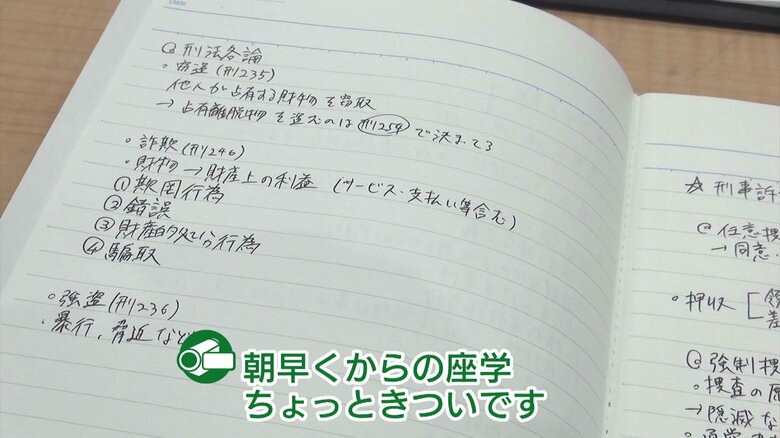 Date
@ 刑法各論
◦ 窃盗 (刑235)
他人が占有する財物を窃取
→ 占有離脱物を盗むのは 刑254 で決まってる
◦ 詐欺 (刑246)
◦ 財物 → 財産上の利益 (サービス・支払い等含む)
① 欺罔行為
② 錯誤
③ 財産的処分行為
④ 騙取
◦ 強盗 (刑236)
・ 暴行、脅迫など
☆ 刑事訴
@ 任意捜
→ 同意・
◦ 押収 [領
差
@ 強制捜
◦ 捜査の原
→ 隠滅な
朝早くからの座学
ちょっときついです